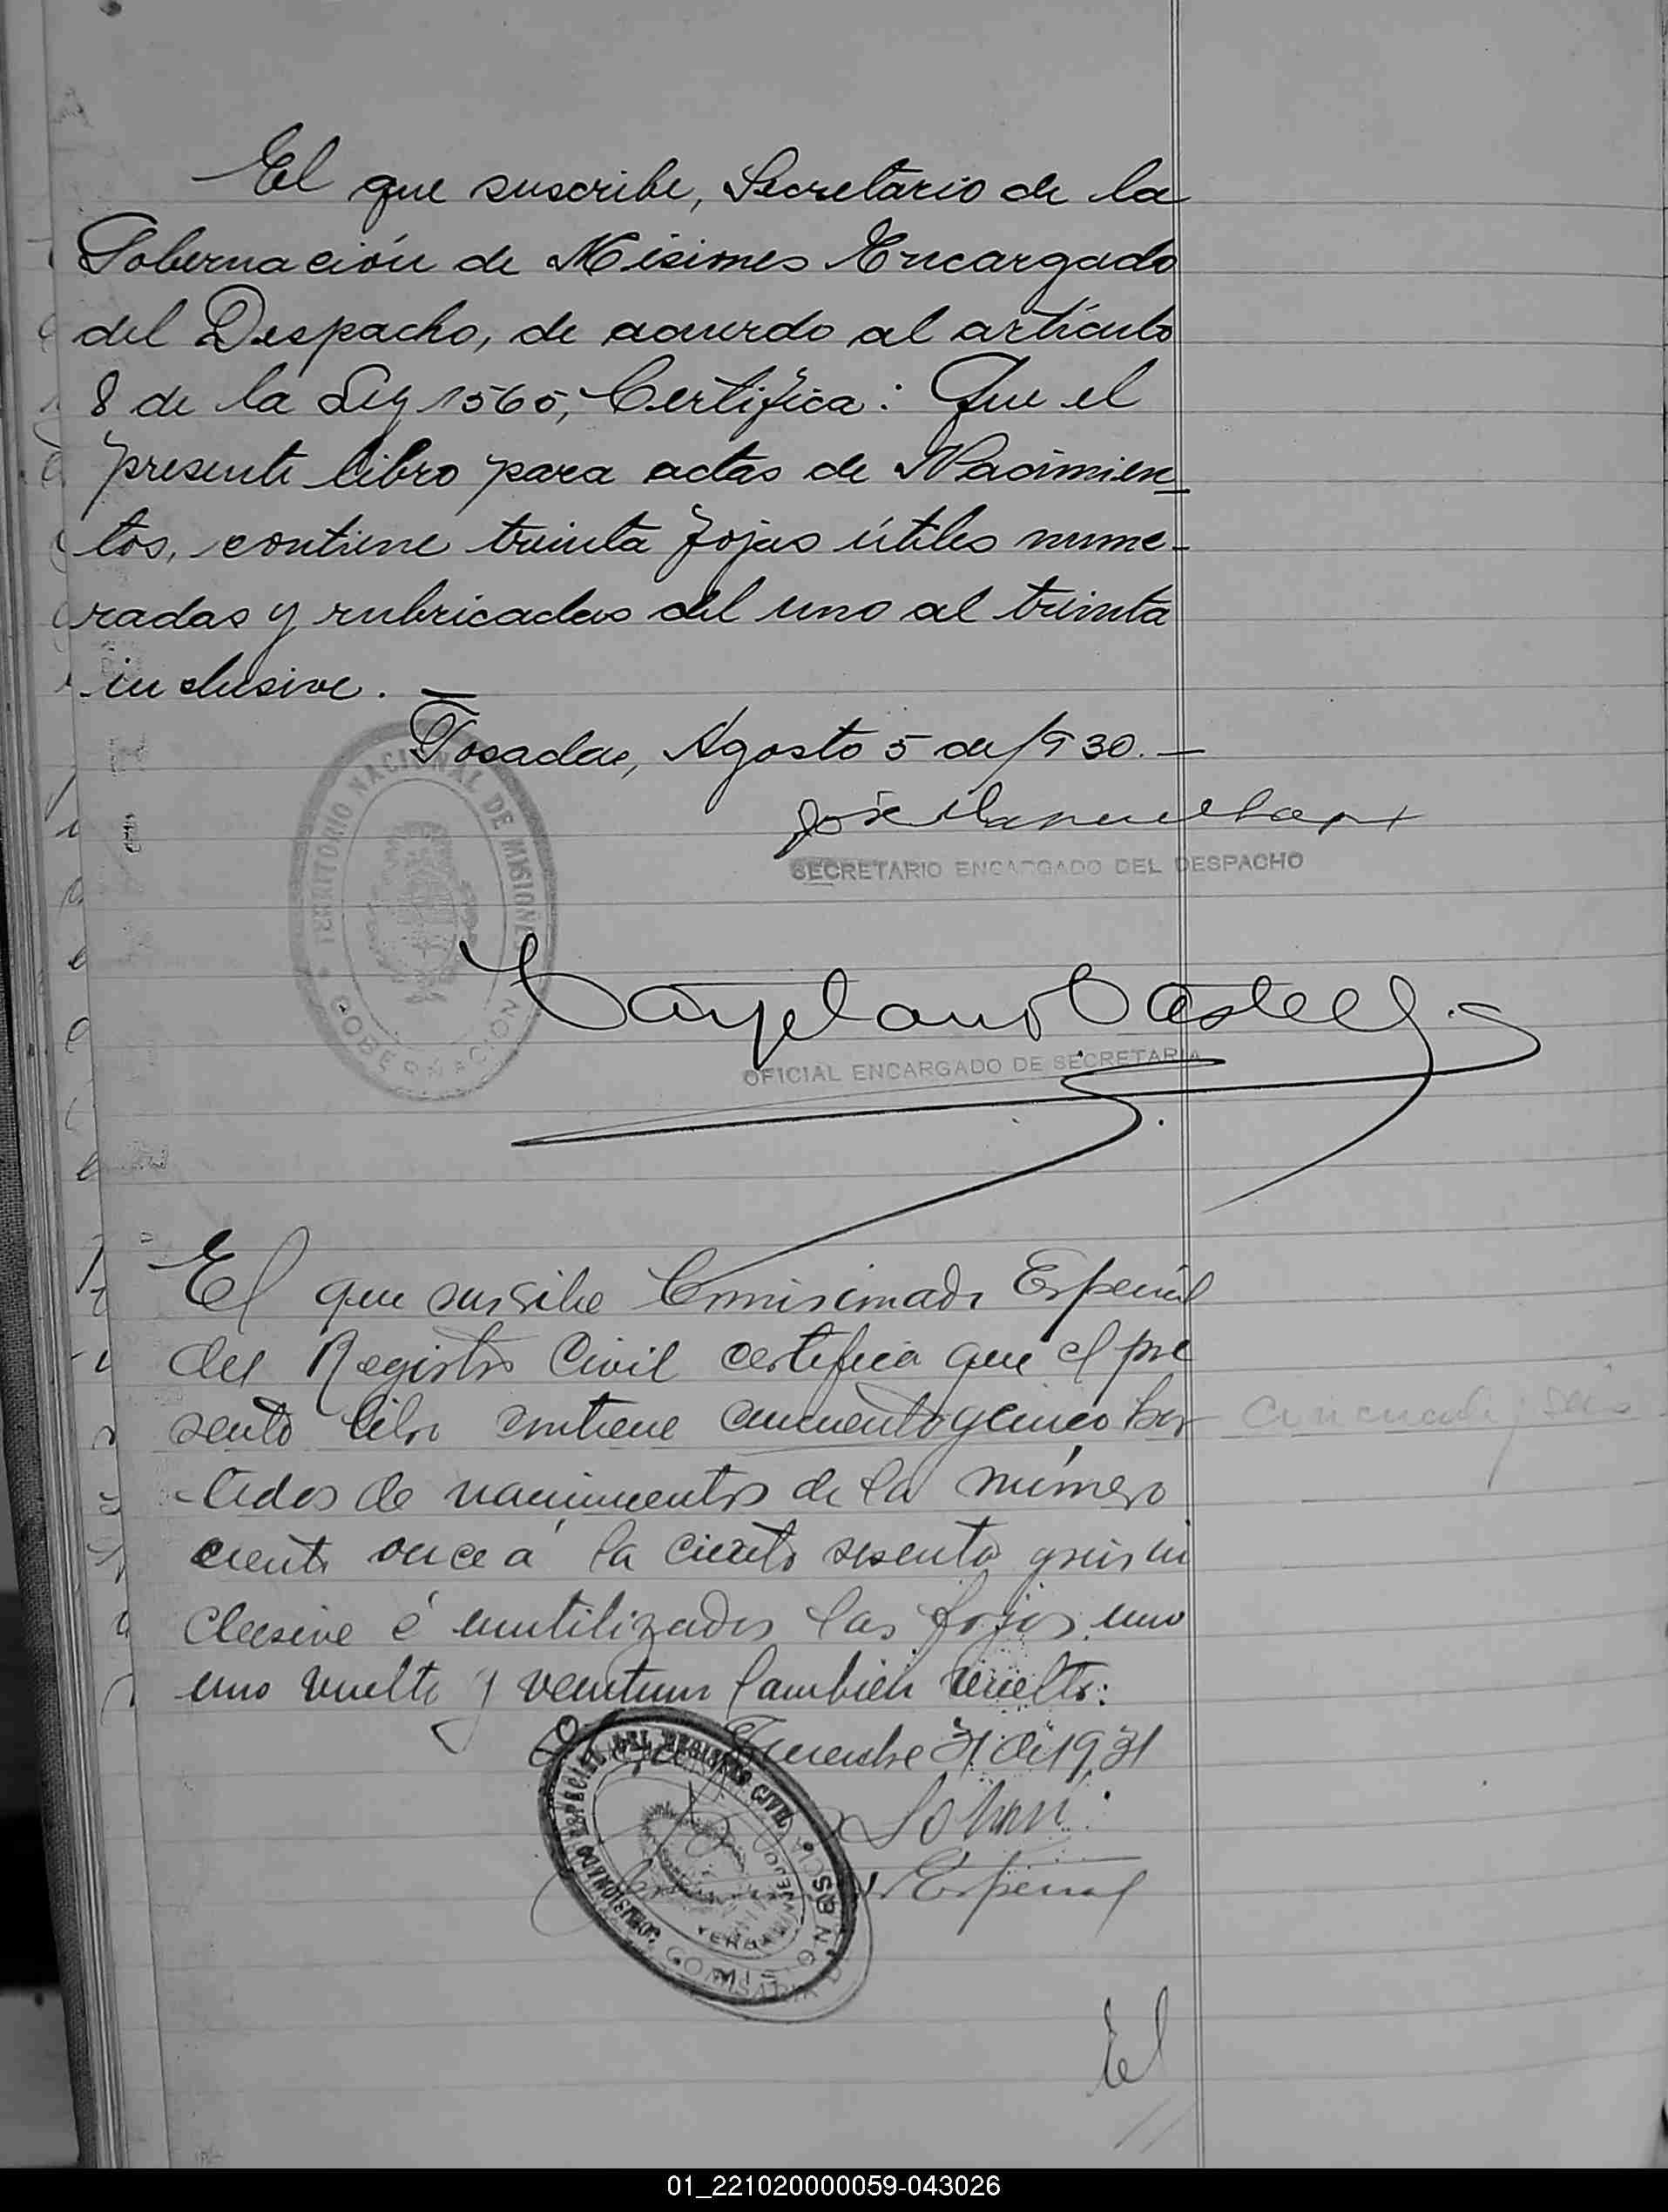 El que suscribe, Secretario de la
Gobernación de Misiones Encargado
del Despacho, de acuerdo al artículo
8 de la Ley 1565, Certifica: Que el
presente libro para actas de Nacimien-
tos, contiene treinta fojas útiles nume-
radas y rubricadas del uno al treinta
inclusive. —
Posadas, Agosto 5 de 1930. —
José Manuel
SECRETARIO ENCARGADO DEL DESPACHO
TERRITORIO NACIONAL DE MISIONES
GOBERNACION
Cayetano Castelli
OFICIAL ENCARGADO DE SECRETARIA
El que suscribe Comisionado Especial
del Registro Civil certifica que el pre
sente libro contiene cincuenta y cinco par cincuenta y seis
tidas de nacimientos de la número
ciento once á la ciento sesenta y seis in
clusive é inutilizadas las fojas uno
uno vuelta y veintiuno tambien vuelta:
31 de 1931
Especial
COMISIONADO ESPECIAL DEL REGISTRO CIVIL
El
01_221020000059-043026